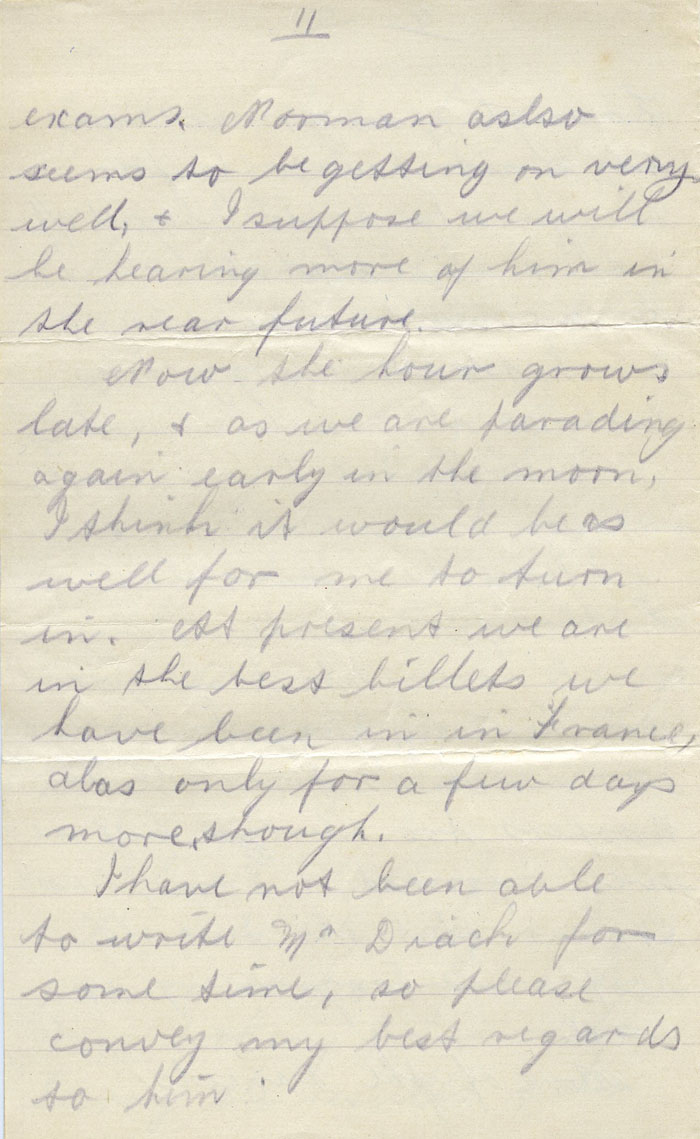 11
exams. Norman aslso
seems to be getting on very
well, & I suppose we will
be hearing more of him in
the near future.
Now the hour grows
late, & as we are parading
again early in the morn,
I think it would be as
well for me to turn
in. At present we are
in the best billets we
have been in in France,
alas only for a few days
more, though.
I have not been able
to write Mr for
some time, so please
convey my best regards
to him.